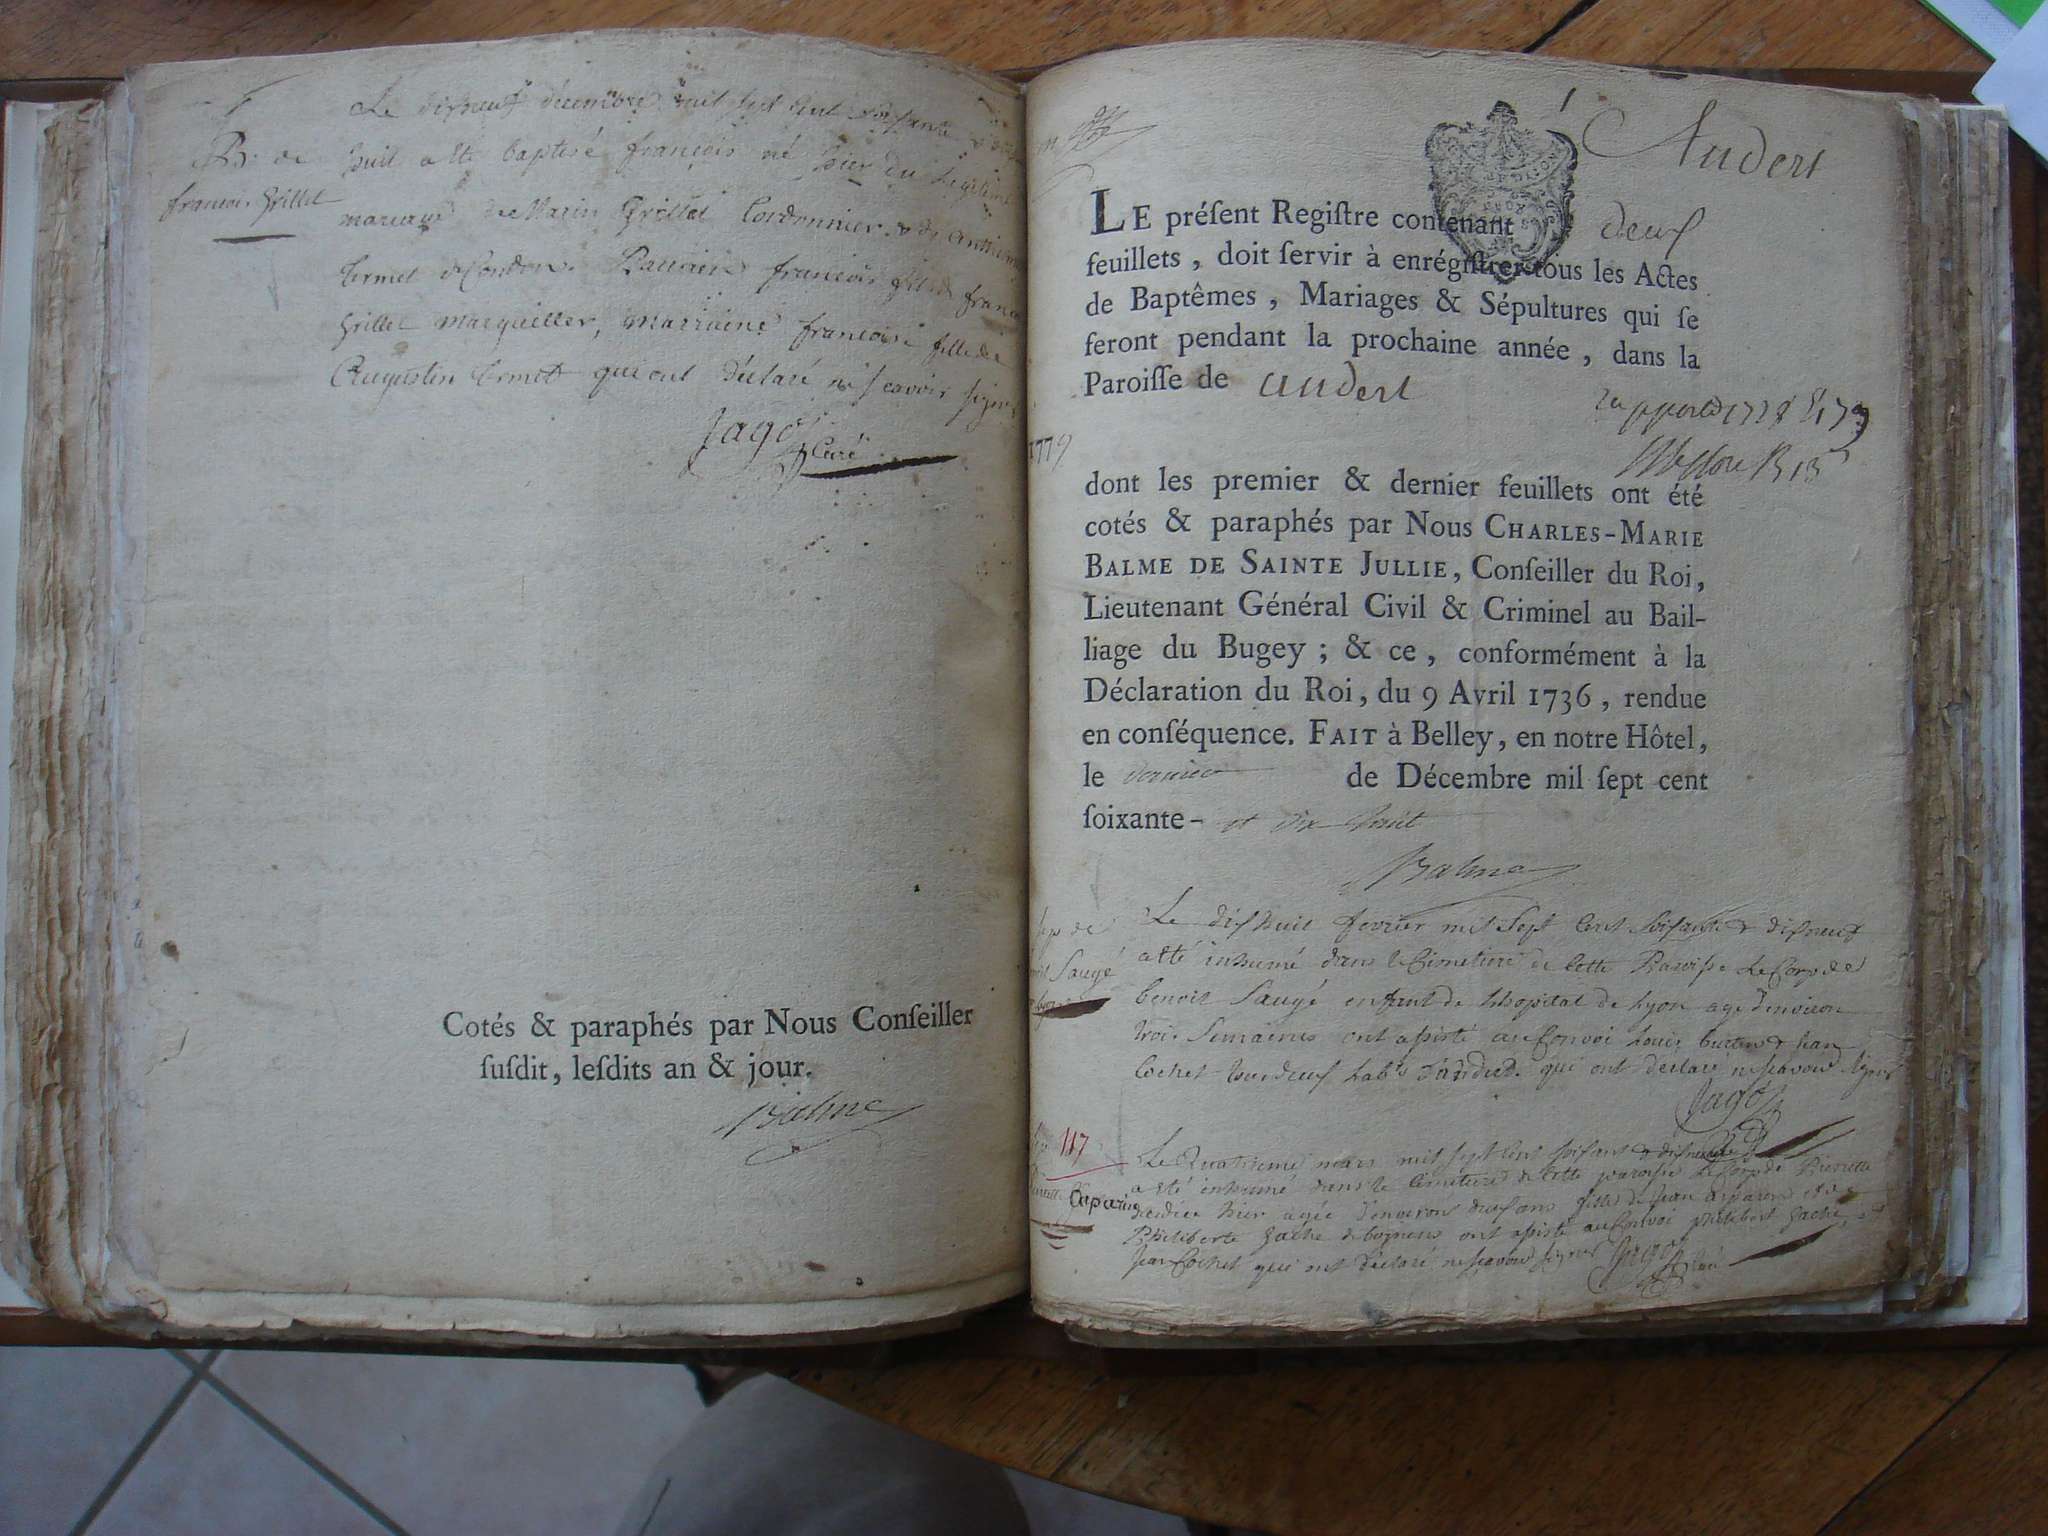 Le disneuf décembre mil sept cent soisante & dis
B. de
huit a ete baptisé françois né hier du legitime
francois Grillet
mariage de Marin Grillet Cordonnier & d'Anthelmette
Ermet de Condon. Parrain françois fils de francois
Grillet marguiller, marraine francoise fille de
Augustin Ermet qui ont déclaré ne scavoir signer
Jago
Curé
Cotés & paraphés par Nous Conſeiller
ſuſdit, leſdits an & jour.
Balme
Andert
LE préſent Regiſtre contenant deux
feuillets, doit ſervir à enrégiſtrer tous les Actes
de Baptêmes, Mariages & Sépultures qui ſe
feront pendant la prochaine année, dans la
Paroiſſe de andert
1779
dont les premier & dernier feuillets ont été
cotés & paraphés par Nous CHARLES-MARIE
BALME DE SAINTE JULLIE, Conſeiller du Roi,
Lieutenant Général Civil & Criminel au Bail-
liage du Bugey ; & ce, conformément à la
Déclaration du Roi, du 9 Avril 1736, rendue
en conſéquence. FAIT à Belley, en notre Hôtel,
le dernier de Décembre mil ſept cent
ſoixante- et dix huit
Balme
Sep de
Saugé
Le dishuit fevrier mil Sept Cent Soisante & disneuf
a été inhumé dans le Cimetiere de Cette Paroisse Le Corp de
benoit Saugé enfant de lhopital de Lyon agé d'environ
trois Semaines ont assisté au Convoi Louis & jean
Cochet tous deux d'andert qui ont declaré ne scavoir signer
Jago
117
Caparin
Le Quatrieme mars mil sept Cent soisante & disneuf
a été inhumé dans le Cimetiere de Cette paroisse Le Corp de Pierrette
decedée hier agée d'environ deux ans fille de jean Caparin et de
Philiberte Gache de bognens ont assisté au Convoi philibert Gache et
jean Cochet qui ont declaré ne scavoir signer Jago Curé